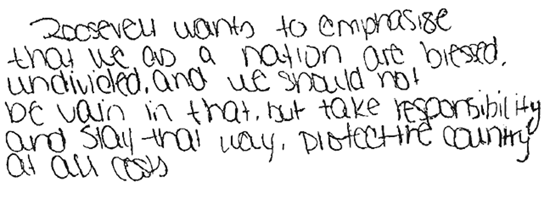 Roosevelt wants to emphasise
that we as a nation are blessed,
undivided, and we should not
be vain in that, but take responsibility
and stay that way, protect the country
at all costs